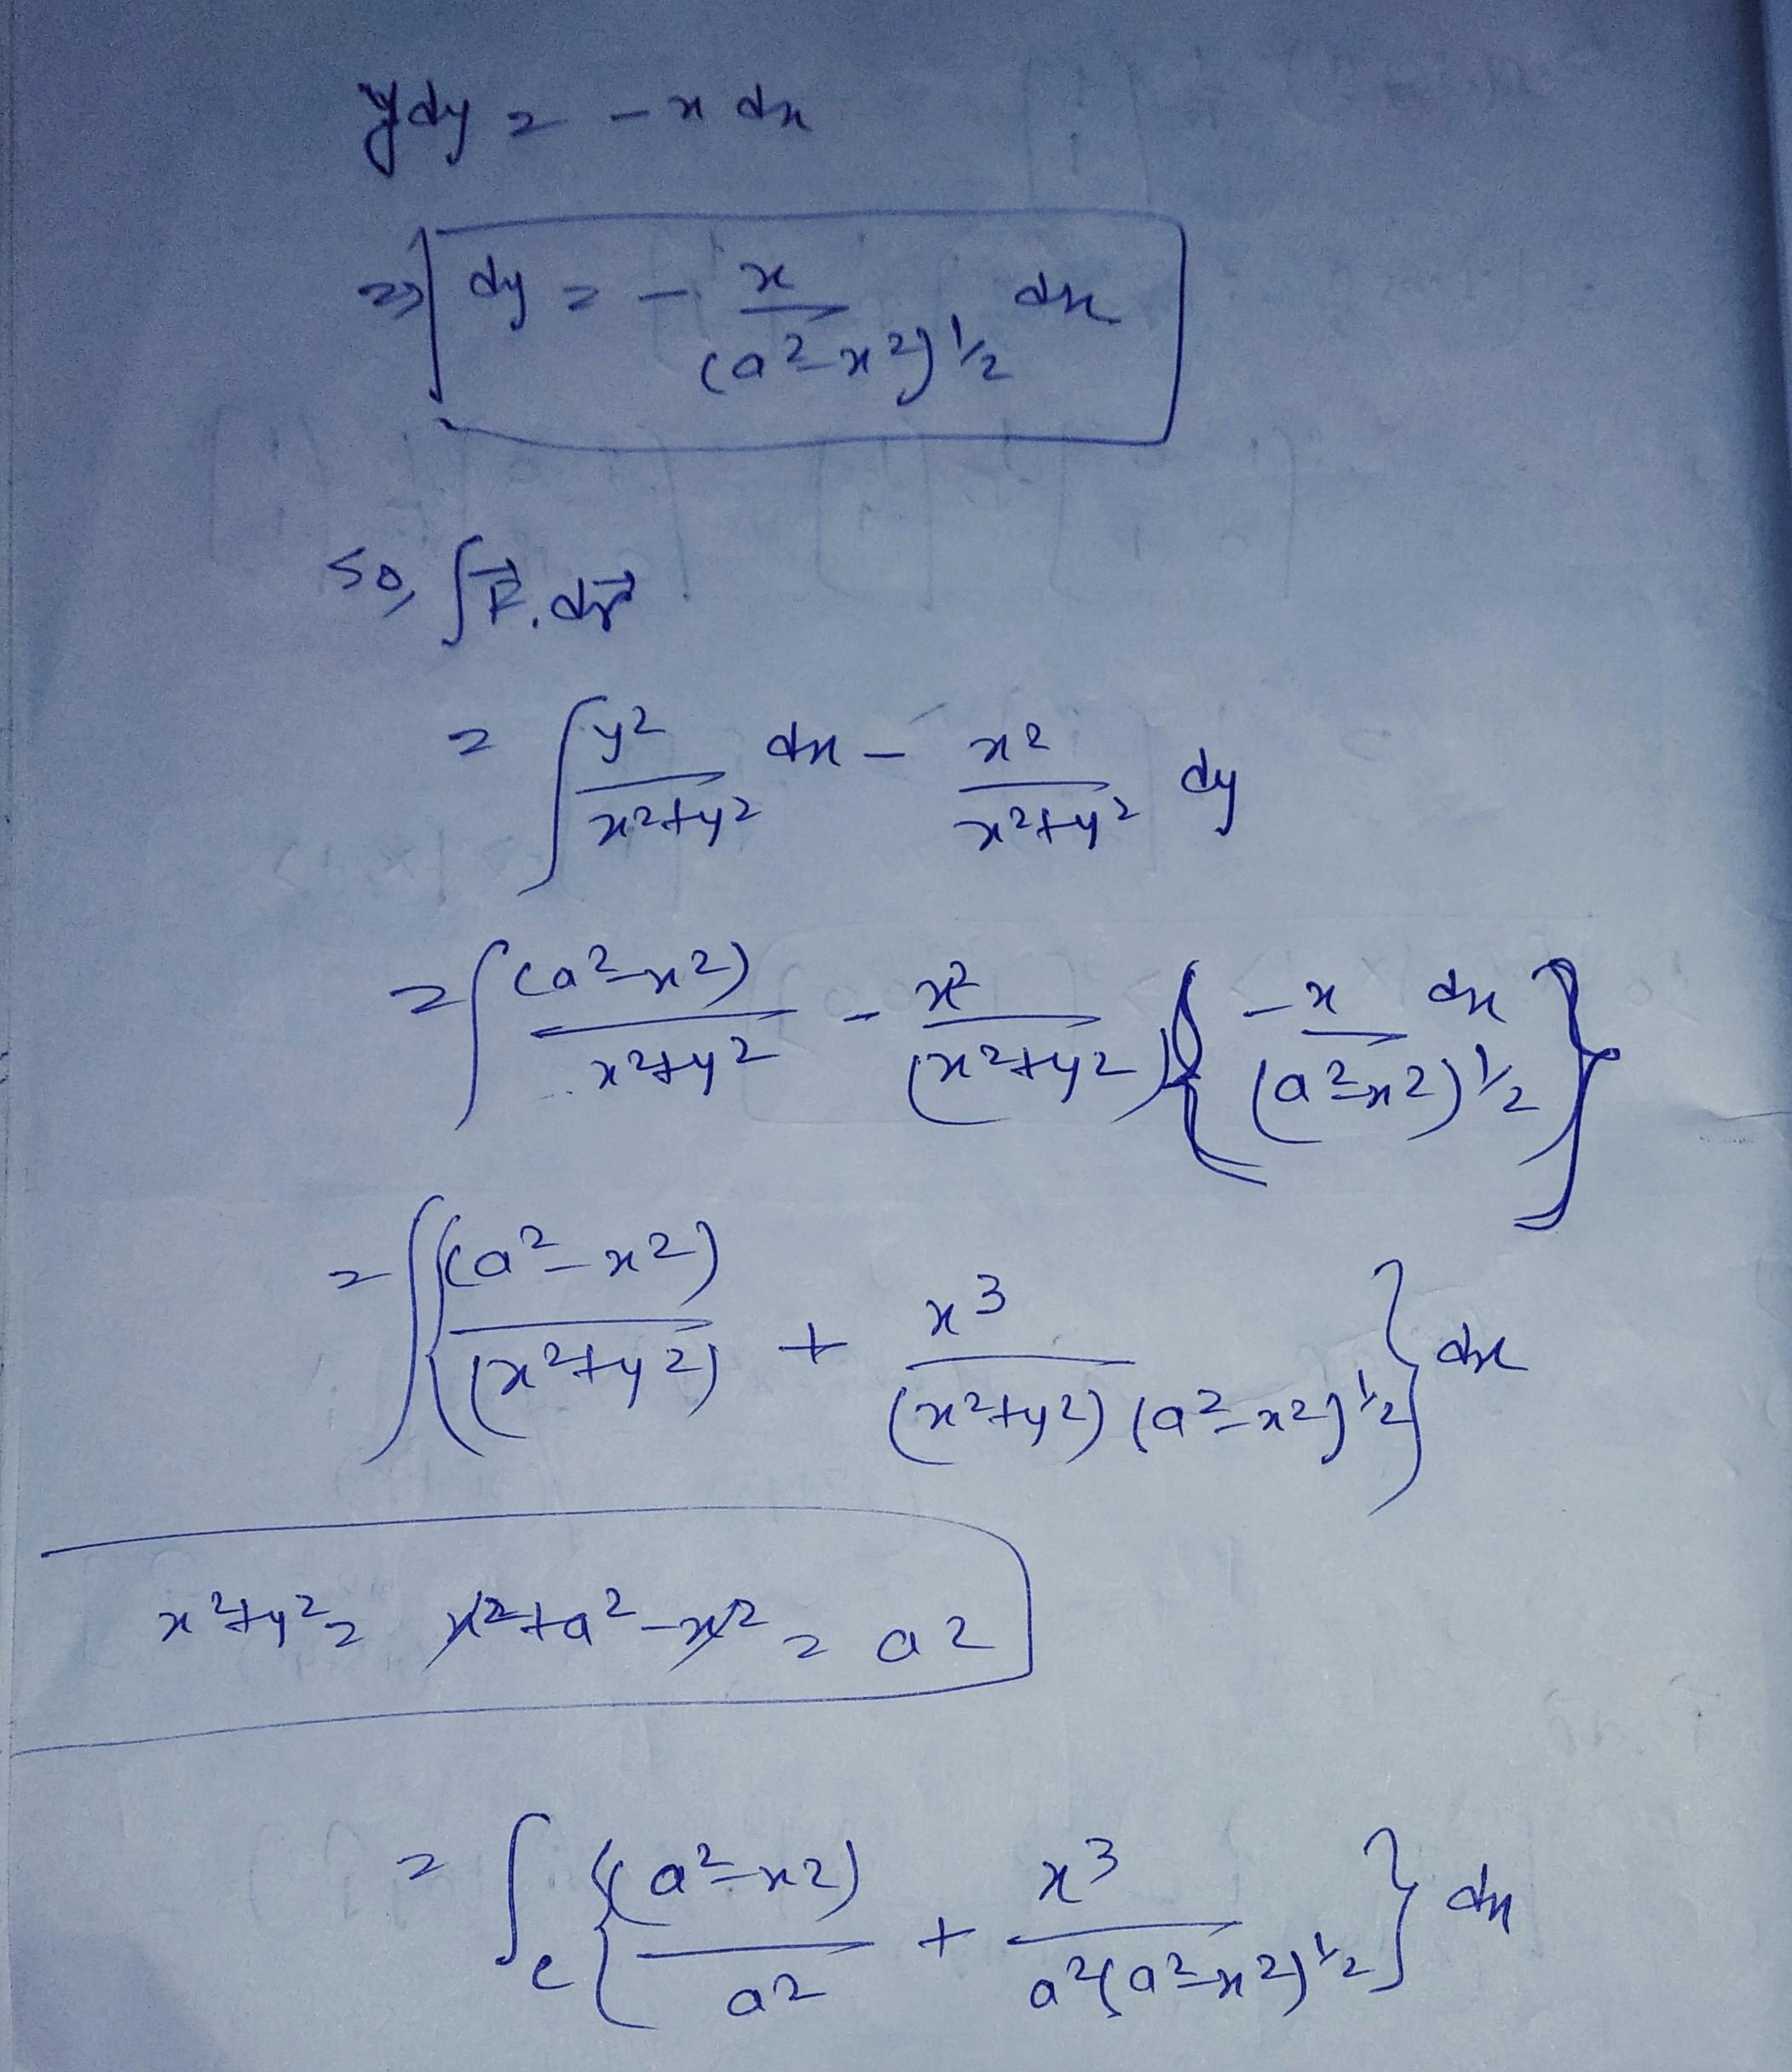 ydy = -x dx
=> dy = - x/(a²-x²)^½ dx
So, ∫F⃗.dr⃗
= ∫ y²/(x²+y²) dx - x²/(x²+y²) dy
= ∫ (a²-x²)/(x²+y²) - x²/(x²+y²) {-x dx/(a²-x²)^½}
= ∫ {(a²-x²)/(x²+y²) + x³/((x²+y²)(a²-x²)^½)} dx
x²+y² = x²+a²-x² = a²
= ∫_c {(a²-x²)/a² + x³/(a²(a²-x²)^½)} dx